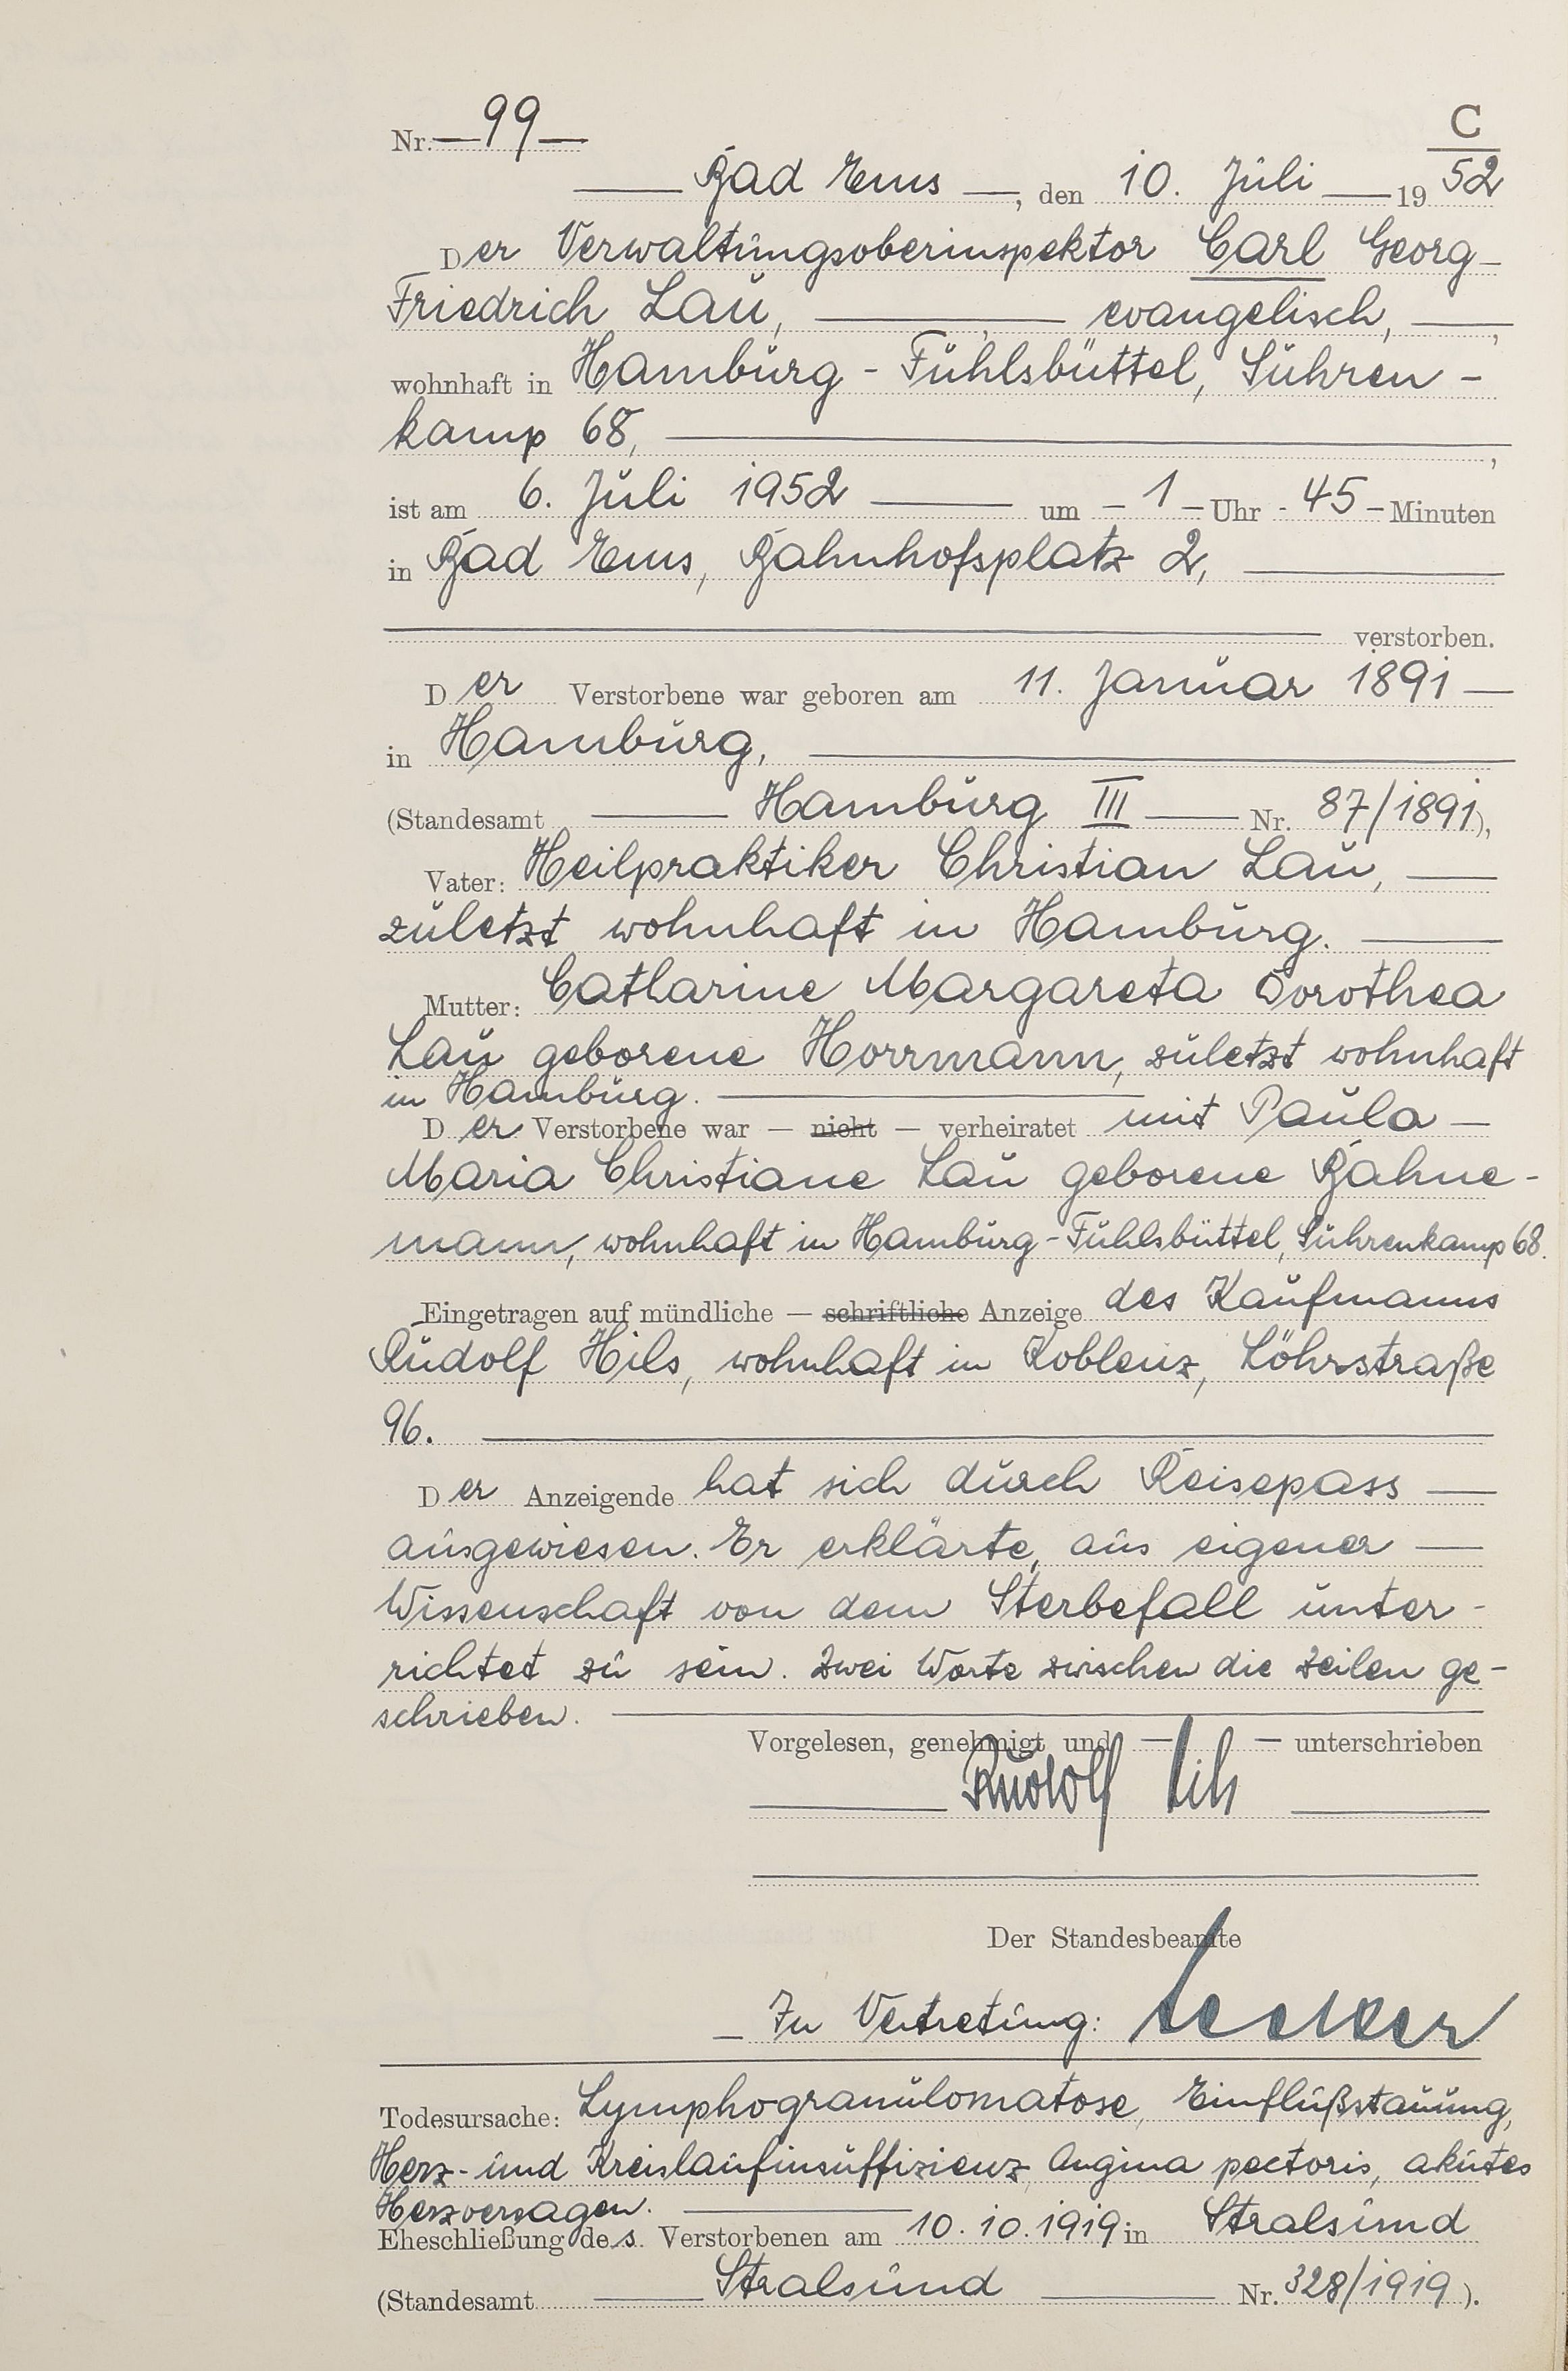 C
Nr. — 99 —
Bad Ems —, den 10. Juli — 19 52
Der Verwaltungsoberinspektor Carl Georg
Friedrich Lau, — evangelisch, —,
wohnhaft in Hamburg - Fuhlsbüttel, Suhren -
kamp 68, —,
ist am 6. Juli 1952 — um - 1 - Uhr - 45 - Minuten
in Bad Ems, Bahnhofsplatz 2, —
— verstorben.
Der Verstorbene war geboren am 11. Januar 1891 —
in Hamburg, —
(Standesamt — Hamburg III — Nr. 87/1891),
Vater: Heilpraktiker Christian Lau, —
zuletzt wohnhaft in Hamburg. —
Mutter: Catharine Margareta Dorothea
Lau geborene Horrmann, zuletzt wohnhaft
in Hamburg. —
Der Verstorbene war — nicht — verheiratet mit Paula —
Maria Christiane Lau geborene Bahne-
mann, wohnhaft in Hamburg-Fuhlsbüttel, Suhrenkamp 68.
Eingetragen auf mündliche — schriftliche Anzeige des Kaufmanns
Rudolf Hils, wohnhaft in Koblenz, Löhrstraße
96. —
Der Anzeigende hat sich durch Reisepass —
ausgewiesen. Er erklärte, aus eigener —
Wissenschaft von dem Sterbefall unter -
richtet zu sein. Zwei Worte zwischen die Zeilen ge-
schrieben. —
Vorgelesen, genehmigt und — — unterschrieben
Rudolf Hils
Der Standesbeamte
In Vertretung:
Todesursache: Lymphogranulomatose, Einflußstauung,
Herz- und Kreislaufinsuffizienz, Angina pectoris, akutes
Herzversagen. —
Eheschließung des Verstorbenen am 10.10.1919 in Stralsund
(Standesamt — Stralsund — Nr. 328/1919).